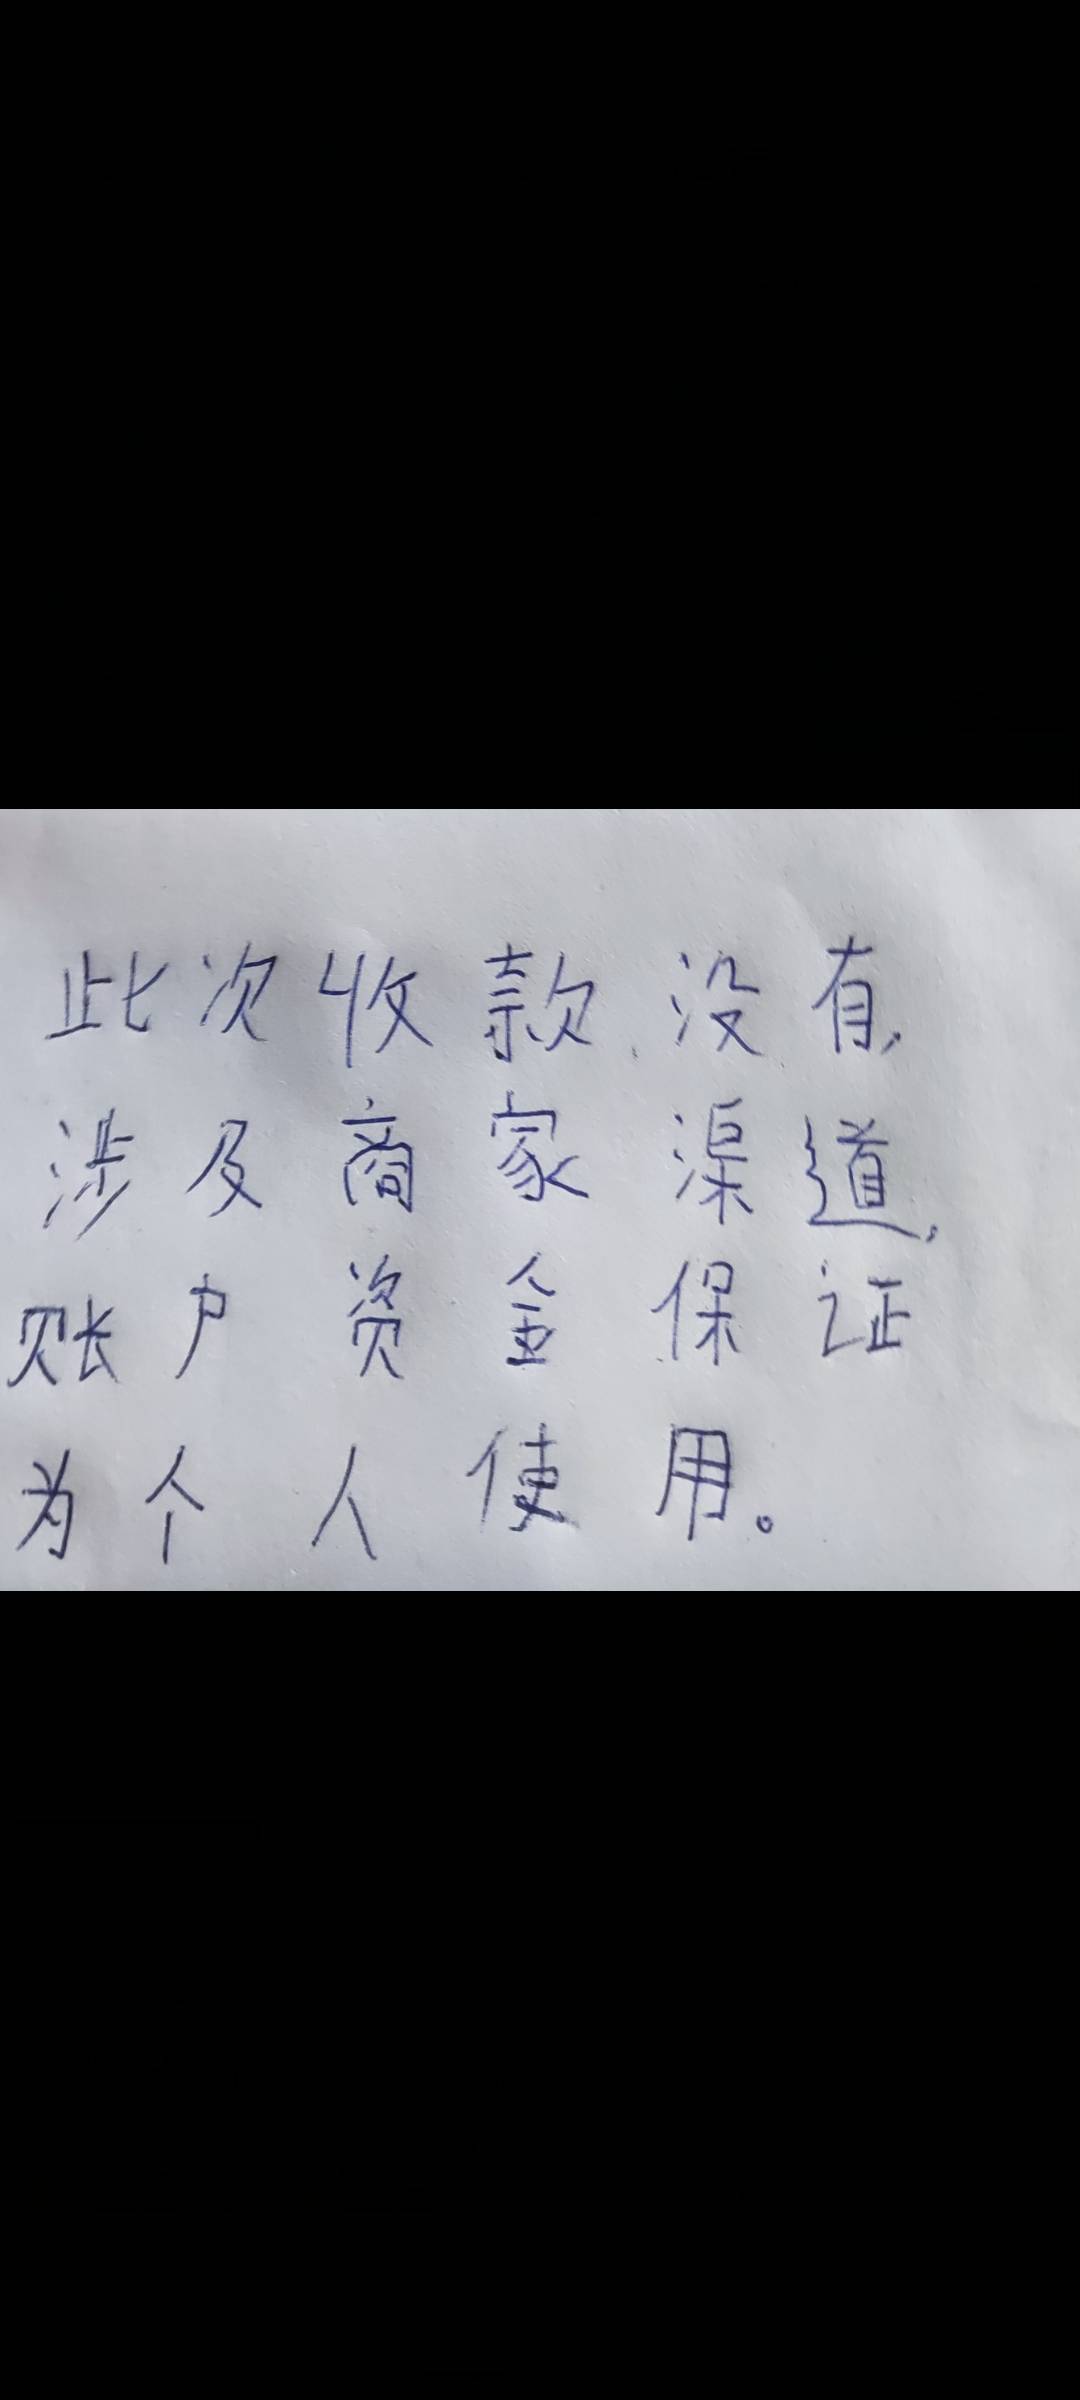 此次收款、没有，
涉及商家渠道，
账户资金保证
为个人使用。